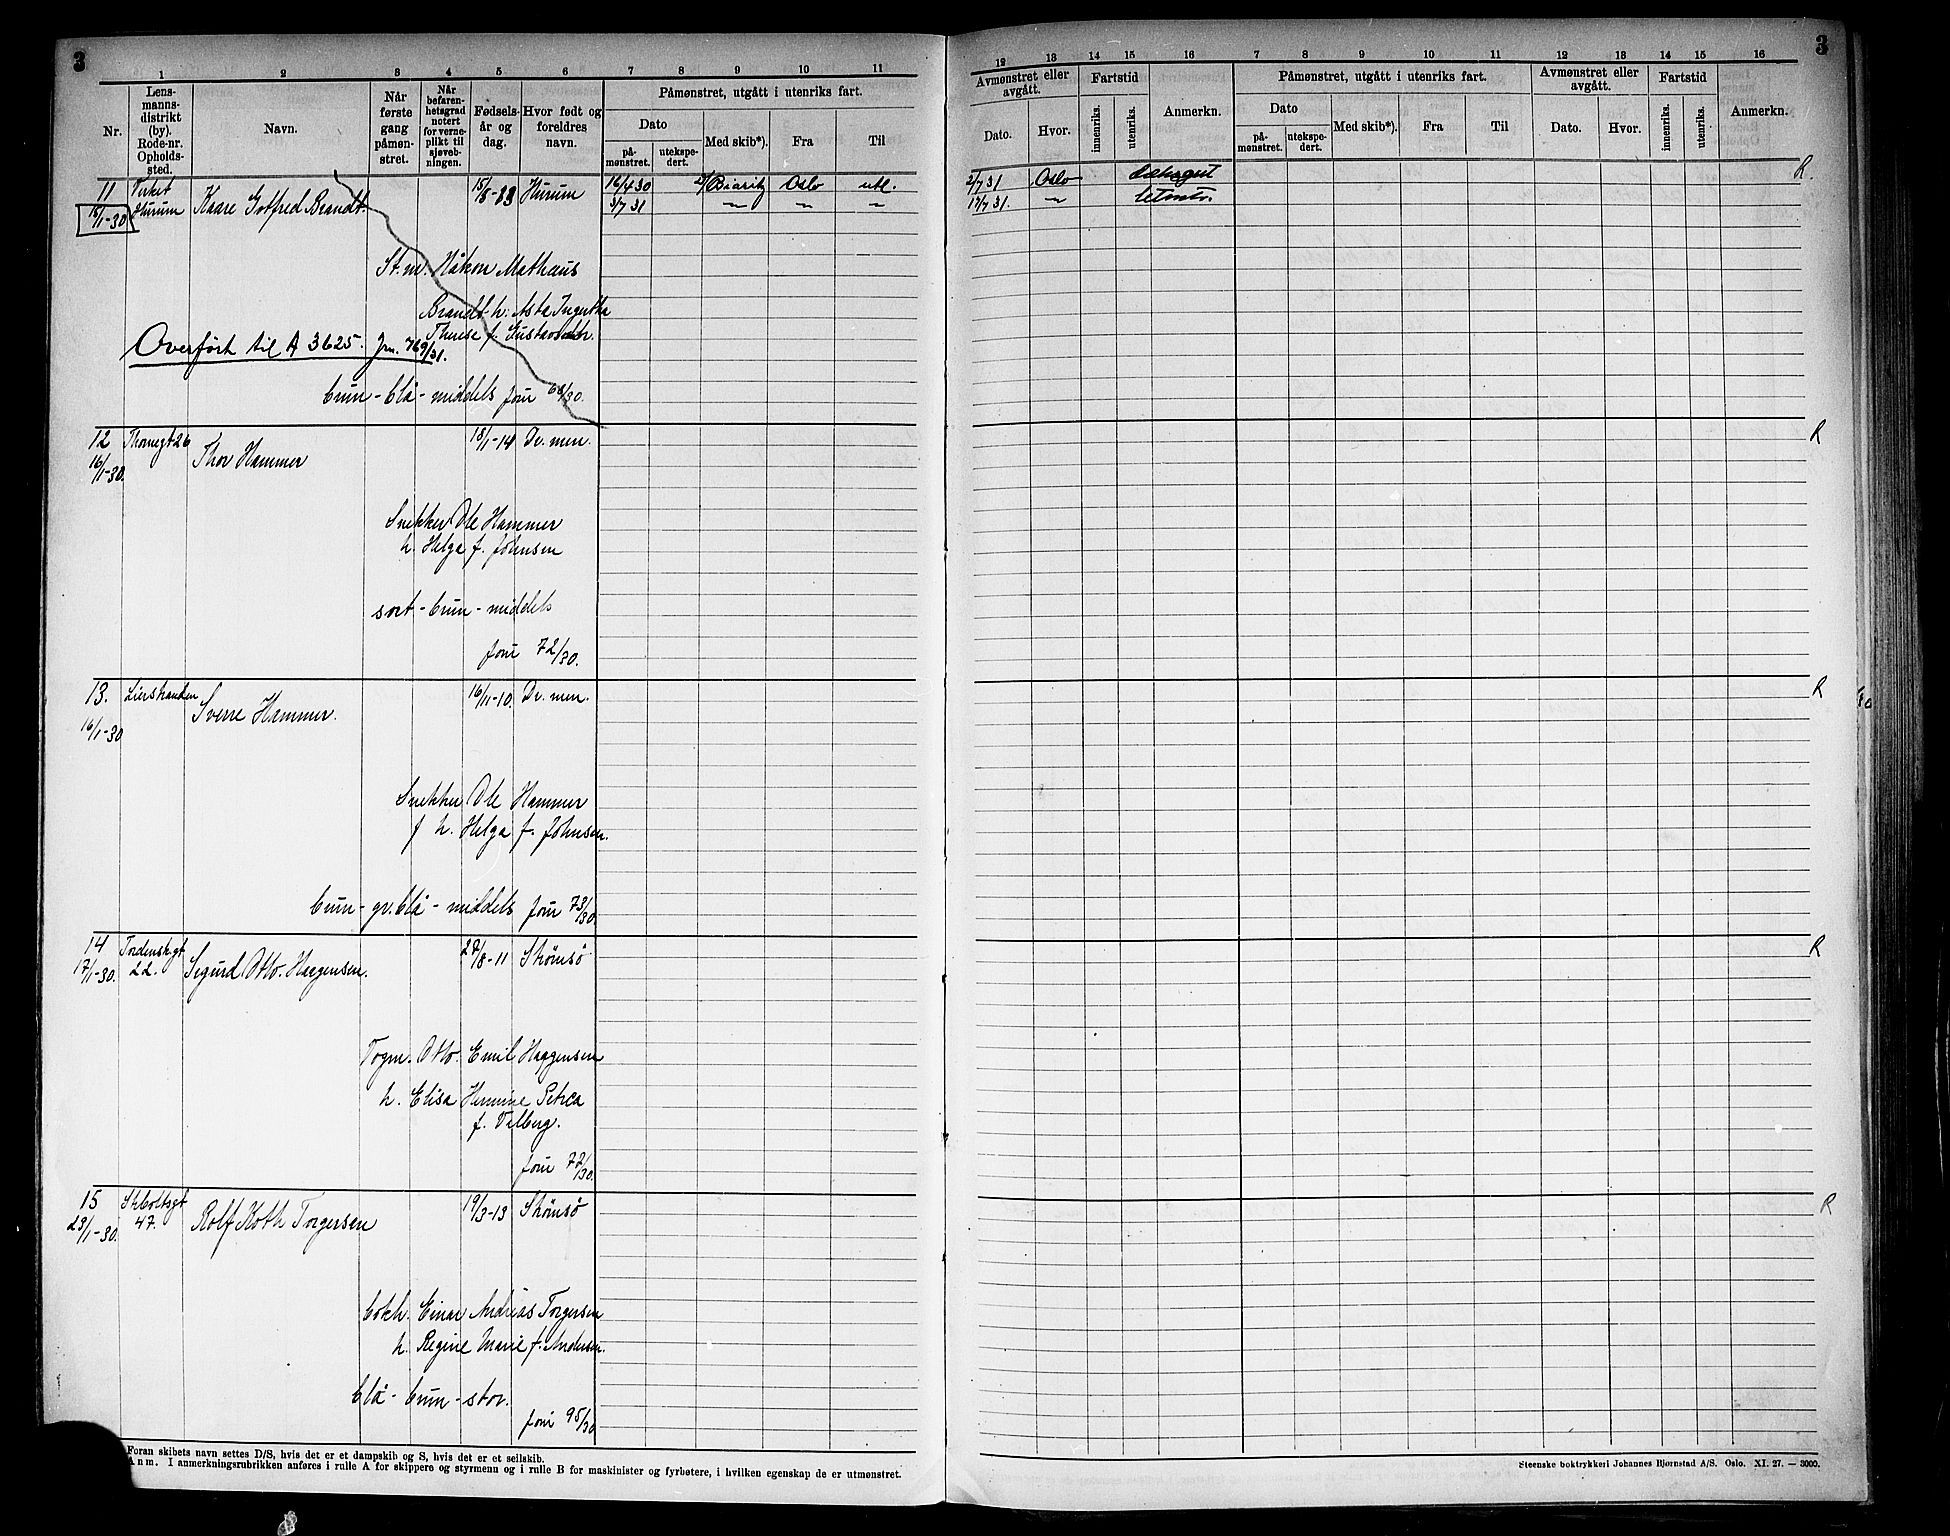 3
1 2 3 4 5 6 7 8 9 10 11
Nr.
Lens-
manns-
distrikt
(by).
Rode-nr.
Opholds-
sted.
Navn.
Når
første
gang
påmøn-
stret.
Når
befaren-
hetsgrad
notert
for verne-
plikt til
sjøveb-
ningen.
Fødsels-
år og
dag.
Hvor født og
foreldres
navn.
Påmønstret, utgått i utenriks fart.
Dato
på-
mønstret.
utekspe-
dert.
Med skib*).
Fra
Til
11 Hurum Kaare Gotfred Brandt 15/8-83 Hurum 16/4 30 Oslo utl.
16/1-30 3/7 31 〃 〃 〃
St.m. Håkon Mathæus
Brandt h. Asta
Therese f.
Overført til A 3625. Jrn. 769/31.
brun - blå - middels jour 68/30.
12 Thornegt 26 Thor Hammer 18/1-14 Dr.men.
16/1-30.
Snekker Ole Hammer
h. Helga f. Johnsen
sort - brun - middels
jour 72/30.
13. Lierstranden Sverre Hammer. 16/11-10. Dr.men.
16/1-30
Snekker Ole Hammer
f h. Helga f. Johnsen.
brun - gr.blå - middels jour 73/30
14 Tordenskgt 22. Sigurd Otto Haggensen. 27/8-11 Strømsø
17/1-30.
Togm. Otto Emil Haggensen
h. Elisa Hermine Petrea
f. Tilberg.
jour 77/30.
15 47. Rolf Koth Torgersen 19/3-13 Strømsø
23/1-30.
Bokh. Einar Andreas Torgersen
h. Regine Marie f. Andersen.
blå - brun - stor.
jour 95/30
Foran skibets navn settes D/S, hvis det er et dampskib og S, hvis det er et seilskib.
Anm. I anmerkningsrubrikken anføres i rulle A for skippere og styrmenn og i rulle B for maskinister og fyrbøtere, i hvilken egenskap de er utmønstret.
3
12 13 14 15 16 7 8 9 10 11 12 13 14 15 16
Avmønstret eller
avgått.
Dato.
Hvor.
Fartstid
innenriks.
utenriks.
Anmerkn.
Påmønstret, utgått i utenriks fart.
Dato
på-
mønstret.
utekspe-
dert.
Med skib*).
Fra
Til
Avmønstret eller
avgått.
Dato.
Hvor.
Fartstid
innenriks.
utenriks.
Anmerkn.
2/7 31 Oslo R.
17/7 31. 〃
R
R
R
R
Steenske boktrykkeri Johannes Bjørnstad A/S. Oslo. XI. 27. — 3000.